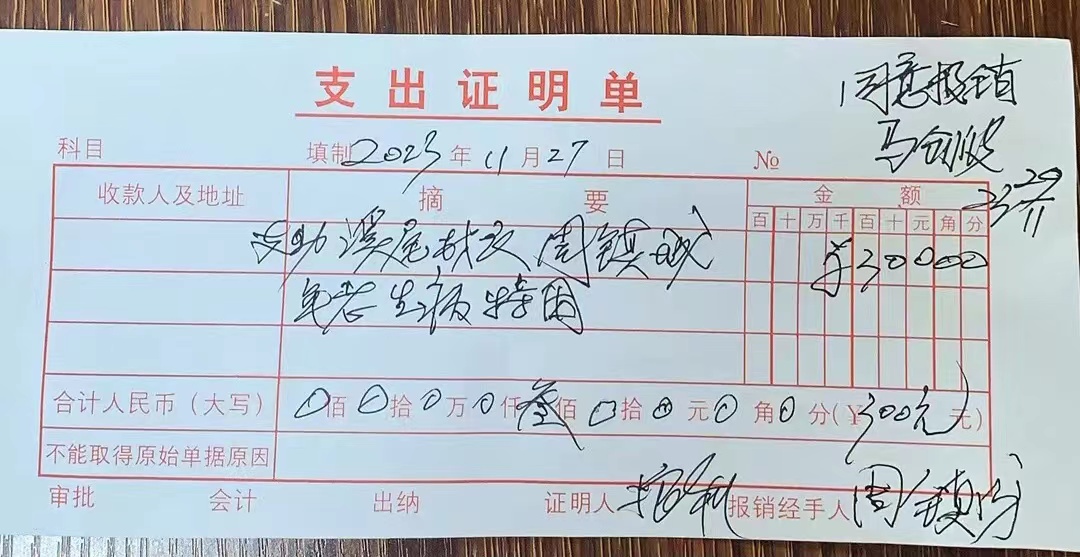 支出证明单
同意报销
科目 填制2023年11月27日 №
收款人及地址 摘要 金额
百十万千百十元角分
溪尾 周镇 ¥30000
生病特困
合计人民币（大写） 0佰0拾0万0仟叁佰0拾0元0角0分(¥300元元)
不能取得原始单据原因
审批 会计 出纳 证明人 报销经手人 周镇